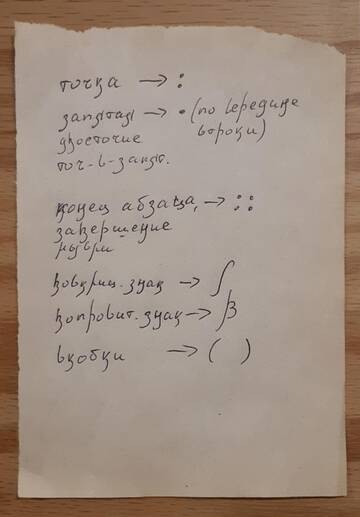 точка → :
запятая → • (по середине
двоеточие строки)
точ-в-запят.
конец абзаца, → ::
завершение
мысли
восклиц. знак → ʃ
вопросит. знак → β
скобки → ( )